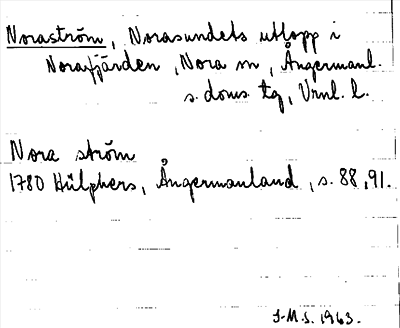 Noraström, Norasundets utlopp i
Norafjärden, Nora sn, Ångermanl.
s. doms. tg, Vrnl. l.
Nora ström
1780 Hülphers, Ångermanland, s. 88, 91.
J.M.S. 1963.